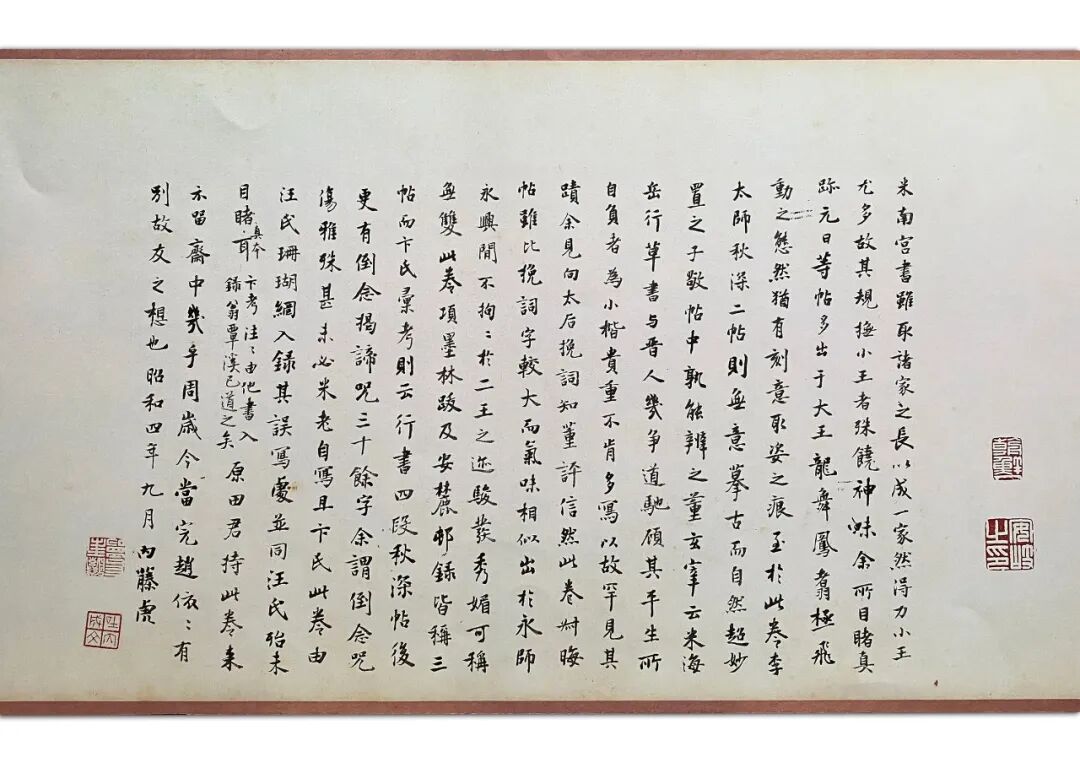 米南宮書雖取諸家之長以成一家然得力小王
尤多故其規橅小王者殊饒神味余所目睹真
跡元日等帖多出于大王龍舞鳳翥極飛
動之態然猶有刻意取姿之痕至於此卷李
太師秋深二帖則無意摹古而自然超妙
置之子敬帖中孰能辨之董玄宰云米海
岳行草書与晋人幾争道馳顧其平生所
自負者為小楷貴重不肯多寫以故罕見其
蹟余見向太后挽詞知董許信然此卷叔晦
帖雖比挽詞字較大而氣味相似出於永師
永興間不拘〻於二王之迹駿發秀媚可稱
無雙此卷項墨林跋及安麓邨録皆稱三
帖而卞氏彙考則云行書四段秋深帖後
更有倒念揭諦咒三十餘字余謂倒念咒
傷雅殊甚未必米老自寫且卞氏此卷由
汪氏珊瑚網入録其誤寫處並同汪氏殆未
目睹真本耳
卞考注〻由他書入
録翁覃溪已道之矣
原田君持此卷来
示留齋中幾乎周歲今當完趙依〻有
別故友之想也昭和四年九月
内藤虎